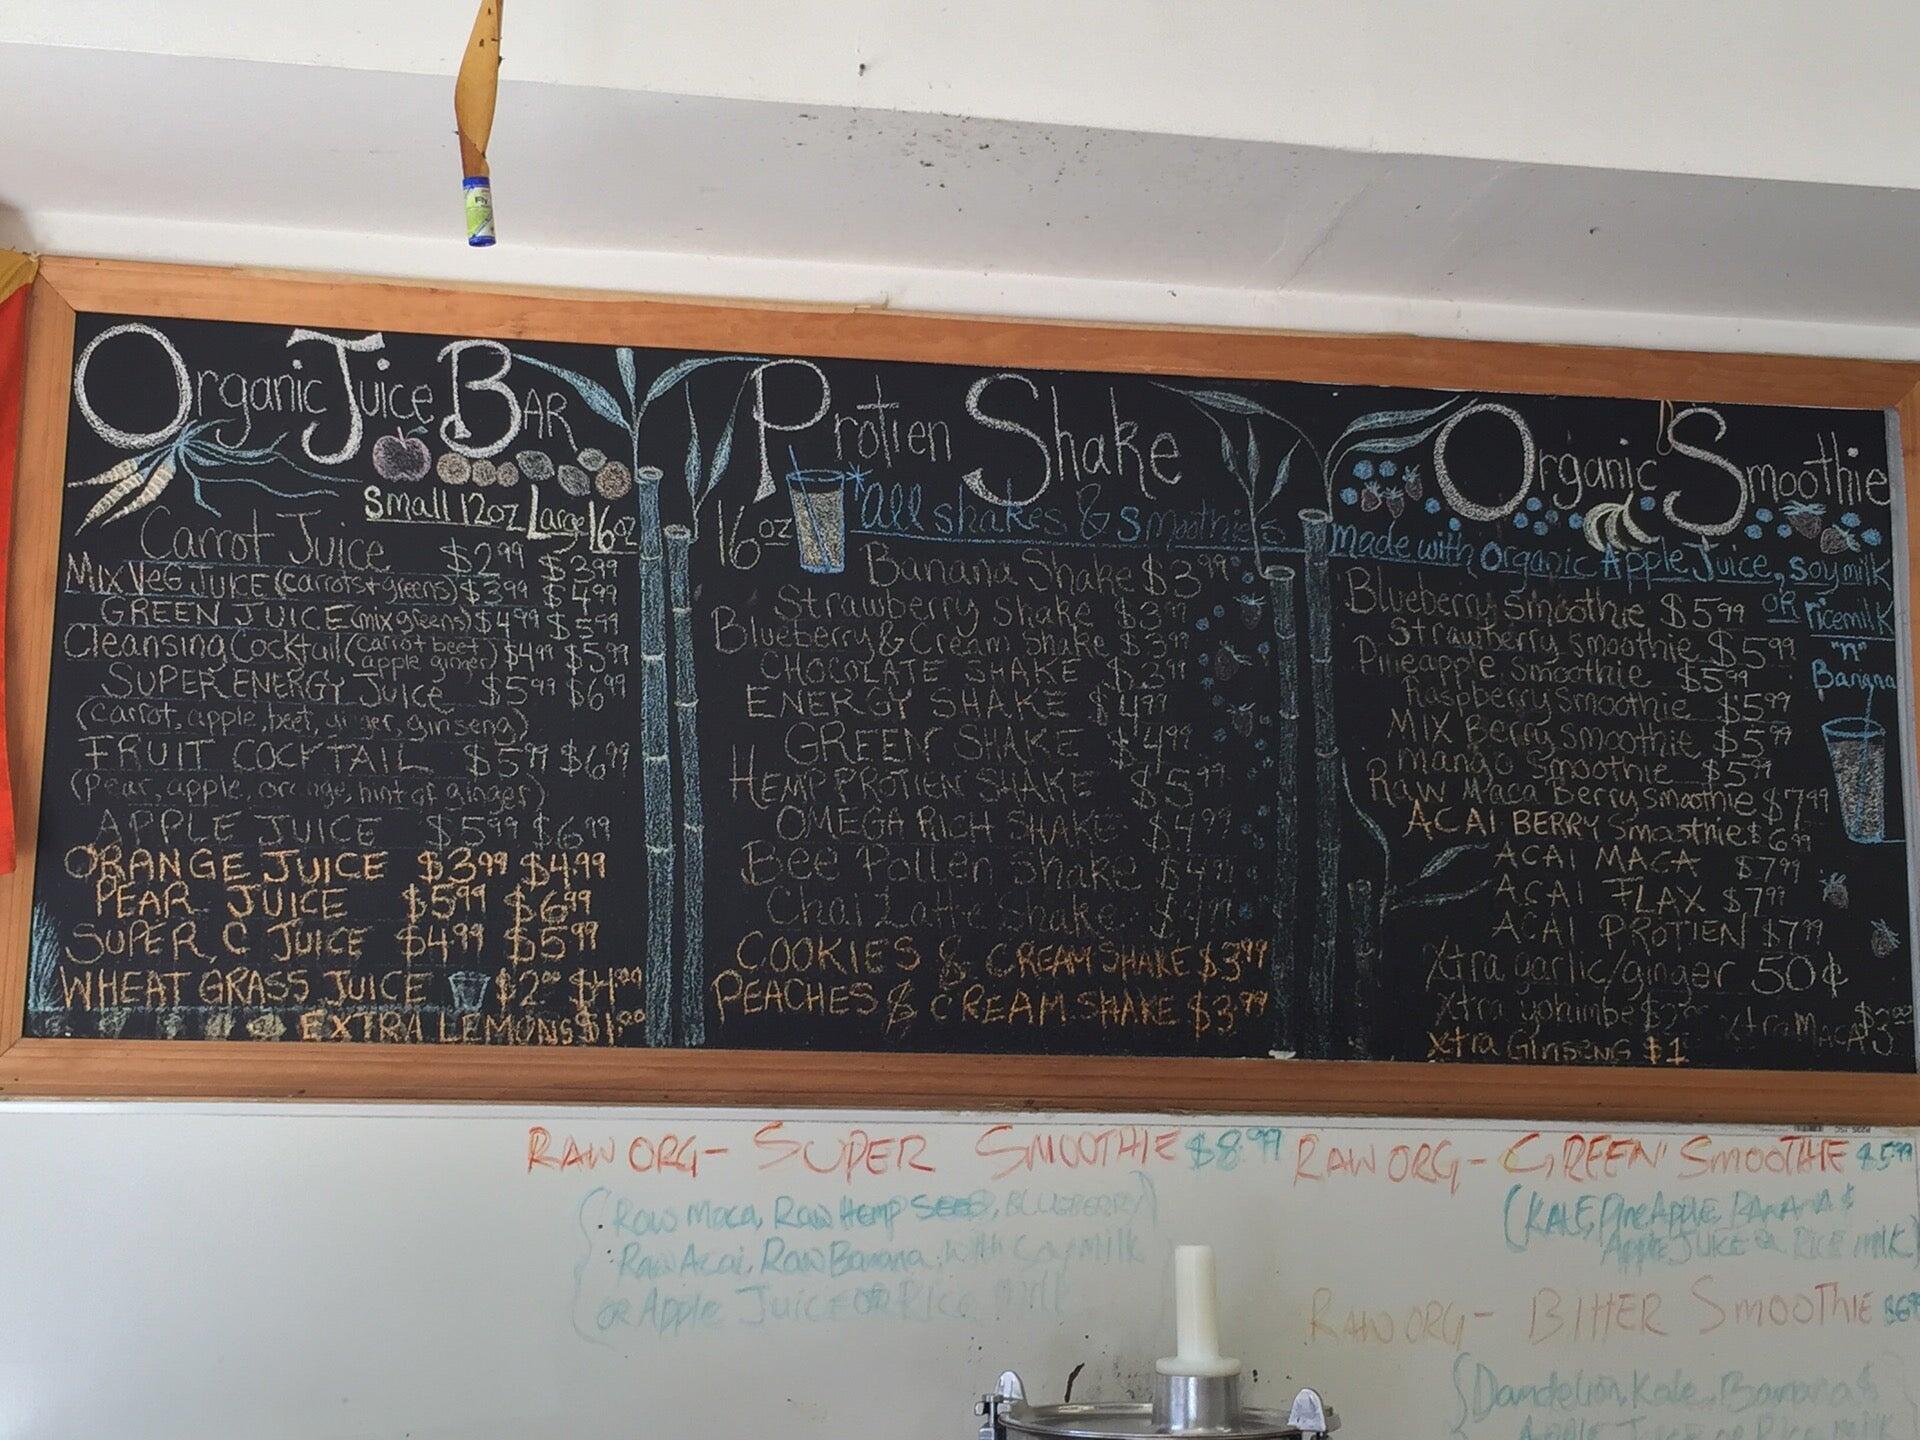 Fly
Organic Juice BAR
Small 12oz Large 16oz
Carrot Juice $2.99 $3.99
MIX VEG JUICE (carrots + greens) $3.99 $4.99
GREEN JUICE (mix greens) $4.99 $5.99
Cleansing Cocktail (carrot beet apple ginger) $4.99 $5.99
SUPER ENERGY JUICE $5.99 $6.99
(carrot, apple, beet, ginger, ginseng)
FRUIT COCKTAIL $5.99 $6.99
(Pear, apple, orange, hint of ginger)
APPLE JUICE $5.99 $6.99
ORANGE JUICE $3.99 $4.99
PEAR JUICE $5.99 $6.99
SUPER C JUICE $4.99 $5.99
WHEAT GRASS JUICE $2.00 $4.00
EXTRA LEMONS $1.00
Protien Shake
16oz *all shakes & Smoothies
Banana Shake $3.99
Strawberry Shake $3.99
Blueberry & Cream Shake $3.99
CHOCOLATE SHAKE $3.99
ENERGY SHAKE $4.99
GREEN SHAKE $4.99
HEMP PROTIEN SHAKE $5.99
OMEGA RICH SHAKE $4.99
Bee Pollen Shake $4.99
Chai Latte Shake $4.99
COOKIES & CREAM SHAKE $3.99
PEACHES & CREAM SHAKE $3.99
Organic Smoothie
made with Organic Apple Juice, soy milk
OR ricemilk
"n"
Banana
Blueberry Smoothie $5.99
Strawberry Smoothie $5.99
Pineapple Smoothie $5.99
Raspberry Smoothie $5.99
MIX Berry Smoothie $5.99
mango Smoothie $5.99
Raw Maca Berry Smoothie $7.99
ACAI BERRY Smoothie $6.99
ACAI MACA $7.99
ACAI FLAX $7.99
ACAI PROTIEN $7.99
Xtra garlic/ginger 50¢
Xtra yohimbe $2.00 Xtra MACA
Xtra GINSENG $1
RAW ORG- SUPER SMOOTHIE $8.99
(Raw Maca, Raw Hemp SEED, BLUEBERRY
Raw Acai, Raw Banana with Soy milk
OR Apple Juice OR Rice milk
RAW ORG- GREEN SMOOTHIE $5.99
(KALE, PineApple, BANANA &
Apple JUICE OR RICE MILK)
RAW ORG- BITTER SMOOTHIE
Dandelion, Kale, Banana &
APPLE JUICE OR Rice MILK